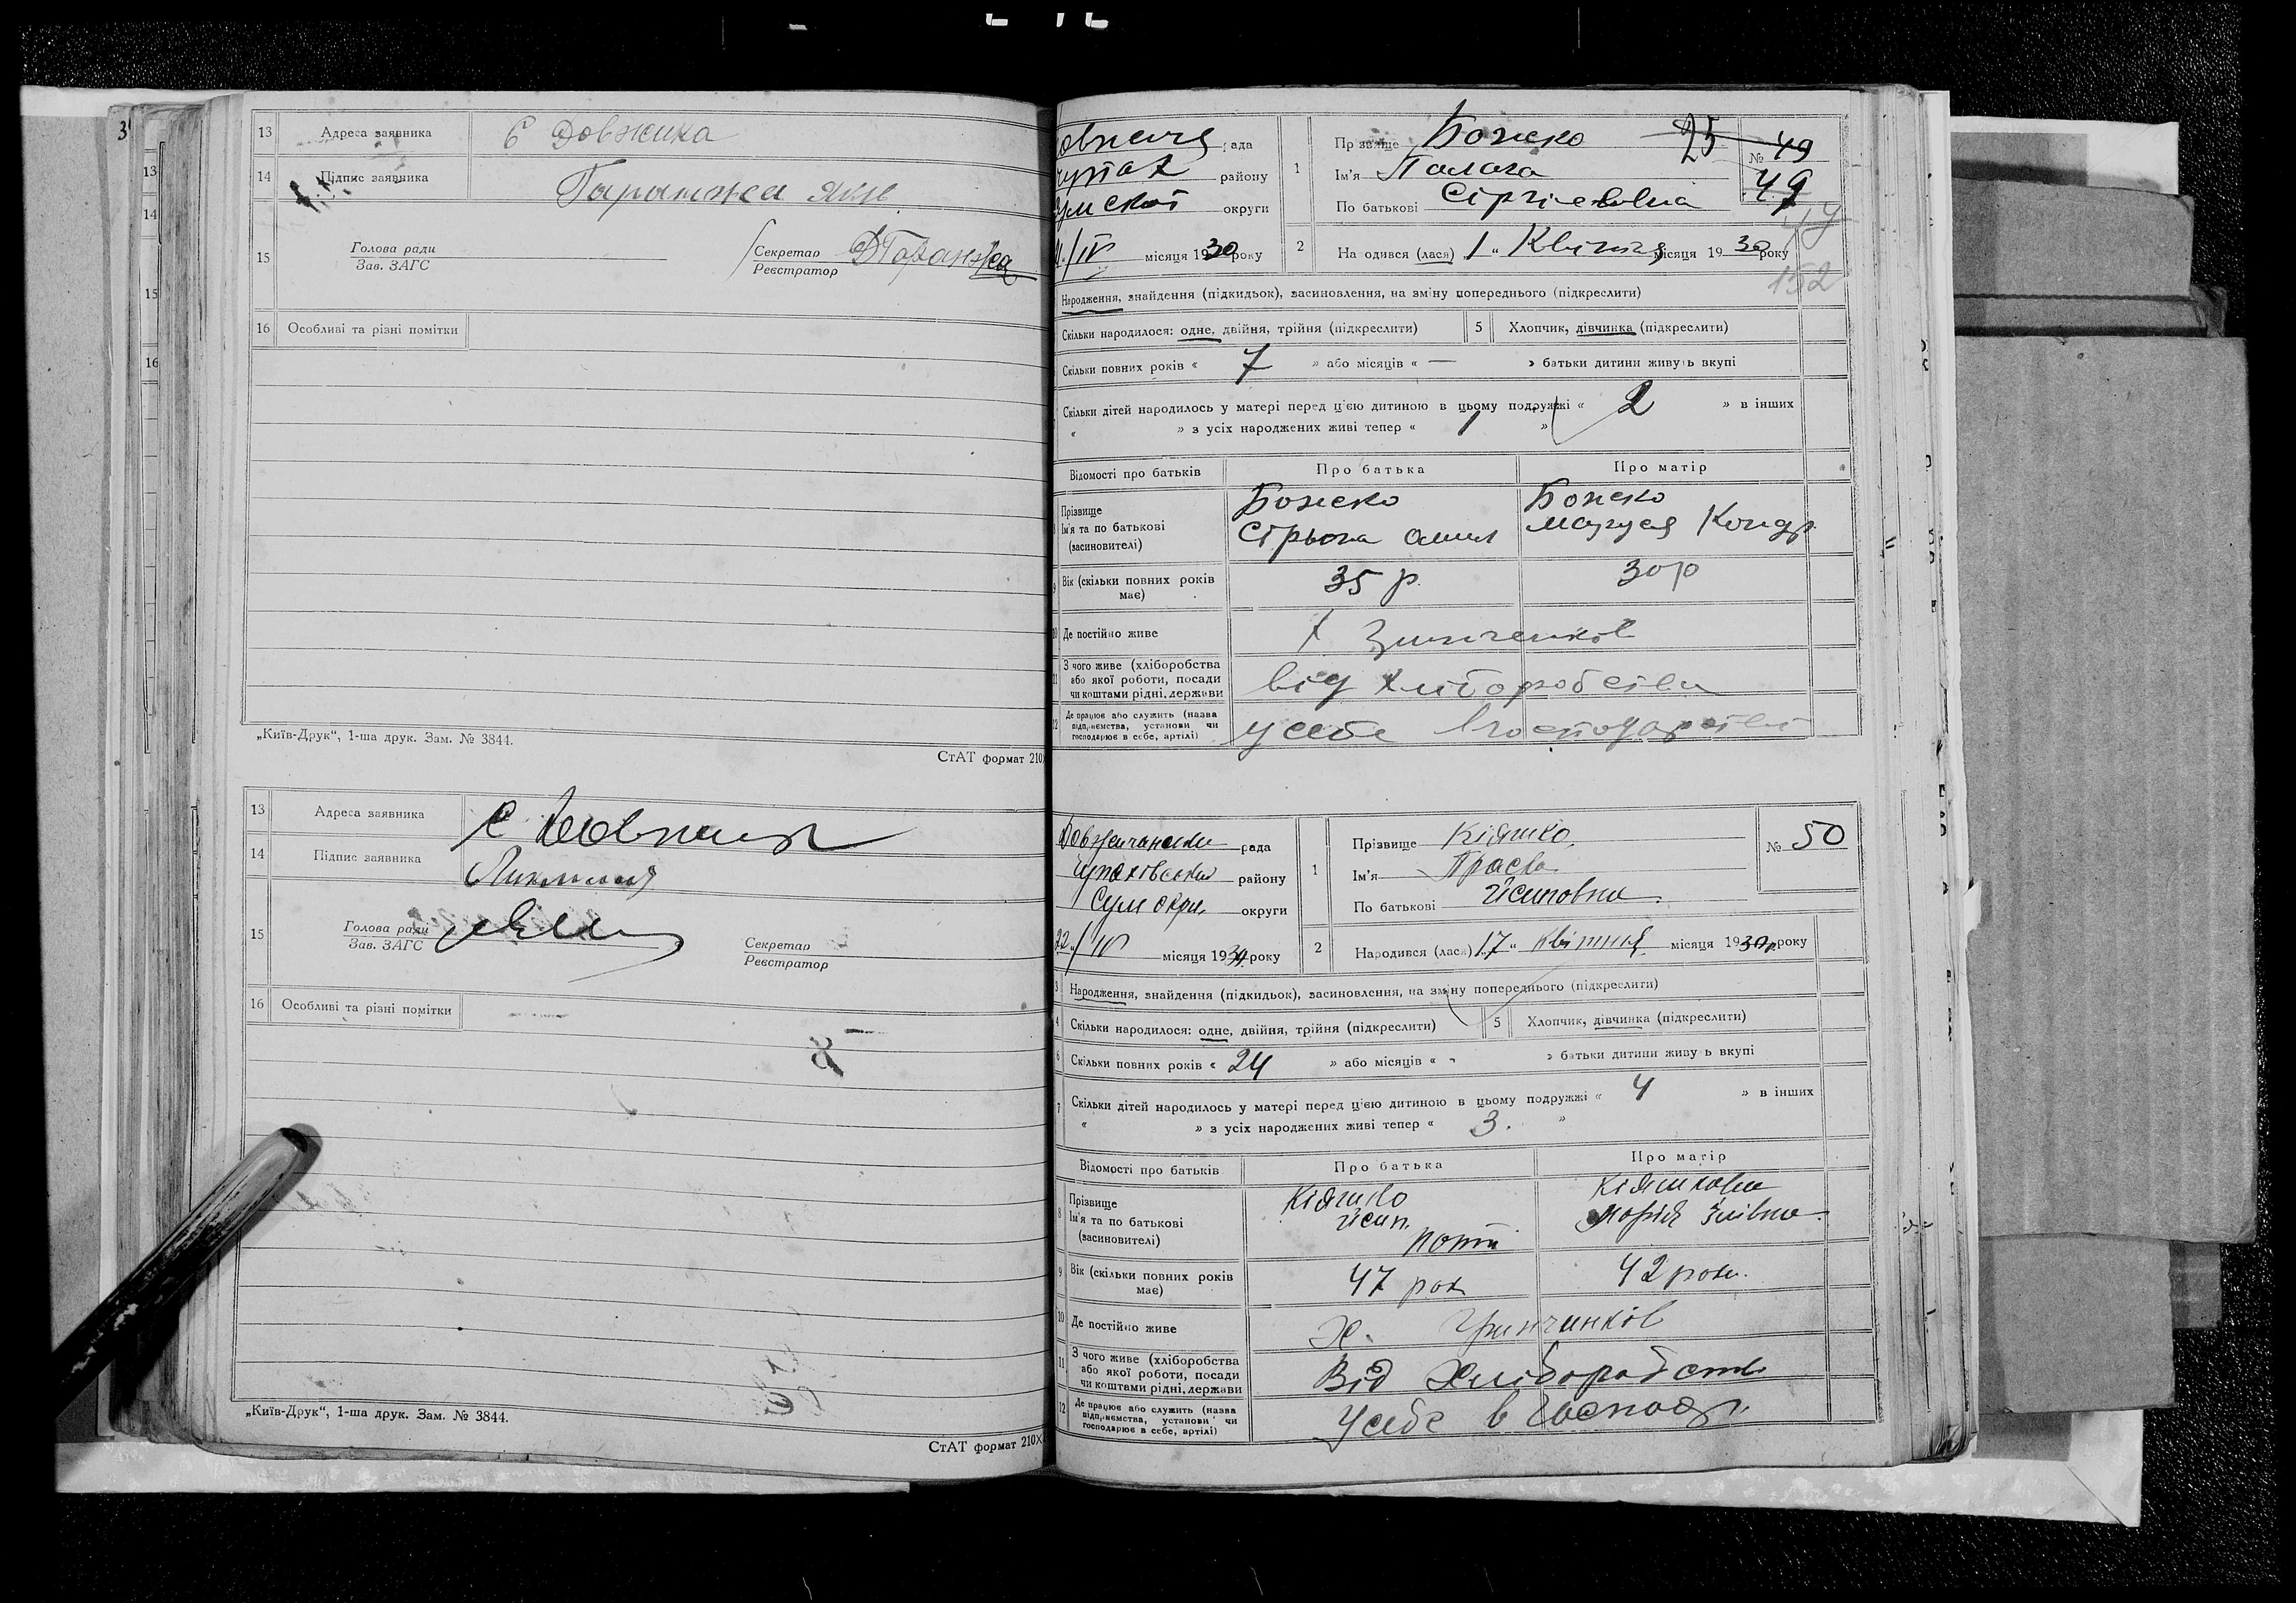 13 Адреса заявника С Довжика
14 Підпис заявника Гаранжа Яків
15 Голова ради
Зав. ЗАГС
Секретар
Реєстратор ДГаранжа
16 Особливі та різні помітки
„Київ-Друк“, 1-ша друк. Зам. № 3844.
СтАТ формат 210X
13 Адреса заявника С
14 Підпис заявника
15 Голова ради
Зав. ЗАГС
Секретар
Реєстратор
16 Особливі та різні помітки
„Київ-Друк“, 1-ша друк. Зам. № 3844.
СтАТ формат 210X
рада
району
округи
/IV місяця 1930 року
1 Прізвище Божко 25
№ 49
49
Ім'я Палага
По батькові Сіргієвна
49
2 Народився (лася) „1“ Квітня місяця 1930 року
152
Народження, знайдення (підкидьок), засиновлення, на зміну попереднього (підкреслити)
Скільки народилося: одне, двійня, трійня (підкреслити) 5 Хлопчик, дівчинка (підкреслити)
Скільки повних років « 7 » або місяців « — » батьки дитини живуть вкупі
Скільки дітей народилось у матері перед цією дитиною в цьому подружжі « 2 » в інших
« » з усіх народжених живі тепер « 1 »
Відомості про батьків Про батька Про матір
Прізвище Божко Божко
Ім'я та по батькові Маруся Конд
(засиновителі) Сірьога
Вік (скільки повних років має) 35 р. 30 р
Де постійно живе х Зинченков
З чого живе (хліборобства
або якої роботи, посади
чи коштами рідні, держави від хліборобства
12 Де працює або служить (назва
підприємства, установи чи
господарює в себе, артілі) у себе в господарстві
Довжичанська рада
Чупахівський району
Сум окри, округи
22/IV місяця 1930 року
1 Прізвище Кіяшко
№ 50
Ім'я Праск
По батькові Йсиповна
2 Народився (лася) „17“ квітня місяця 1930 р. року
3 Народження, знайдення (підкидьок), засиновлення, на зміну попереднього (підкреслити)
4 Скільки народилося: одне, двійня, трійня (підкреслити) 5 Хлопчик, дівчинка (підкреслити)
6 Скільки повних років « 24 » або місяців « - » батьки дитини живуть вкупі
7 Скільки дітей народилось у матері перед цією дитиною в цьому подружжі « 4 » в інших
« » з усіх народжених живі тепер « 3. »
Відомості про батьків Про батька Про матір
8 Прізвище Кіяшко Кіяшкова
Ім'я та по батькові Йсип. Марія
(засиновителі)
9 Вік (скільки повних років має) 47 рок 42 роки.
10 Де постійно живе Х. Гринчинків
11 З чого живе (хліборобства
або якої роботи, посади
чи коштами рідні, держави Від Хліборобств
12 Де працює або служить (назва
підприємства, установи чи
господарює в себе, артілі) У себе в господ.